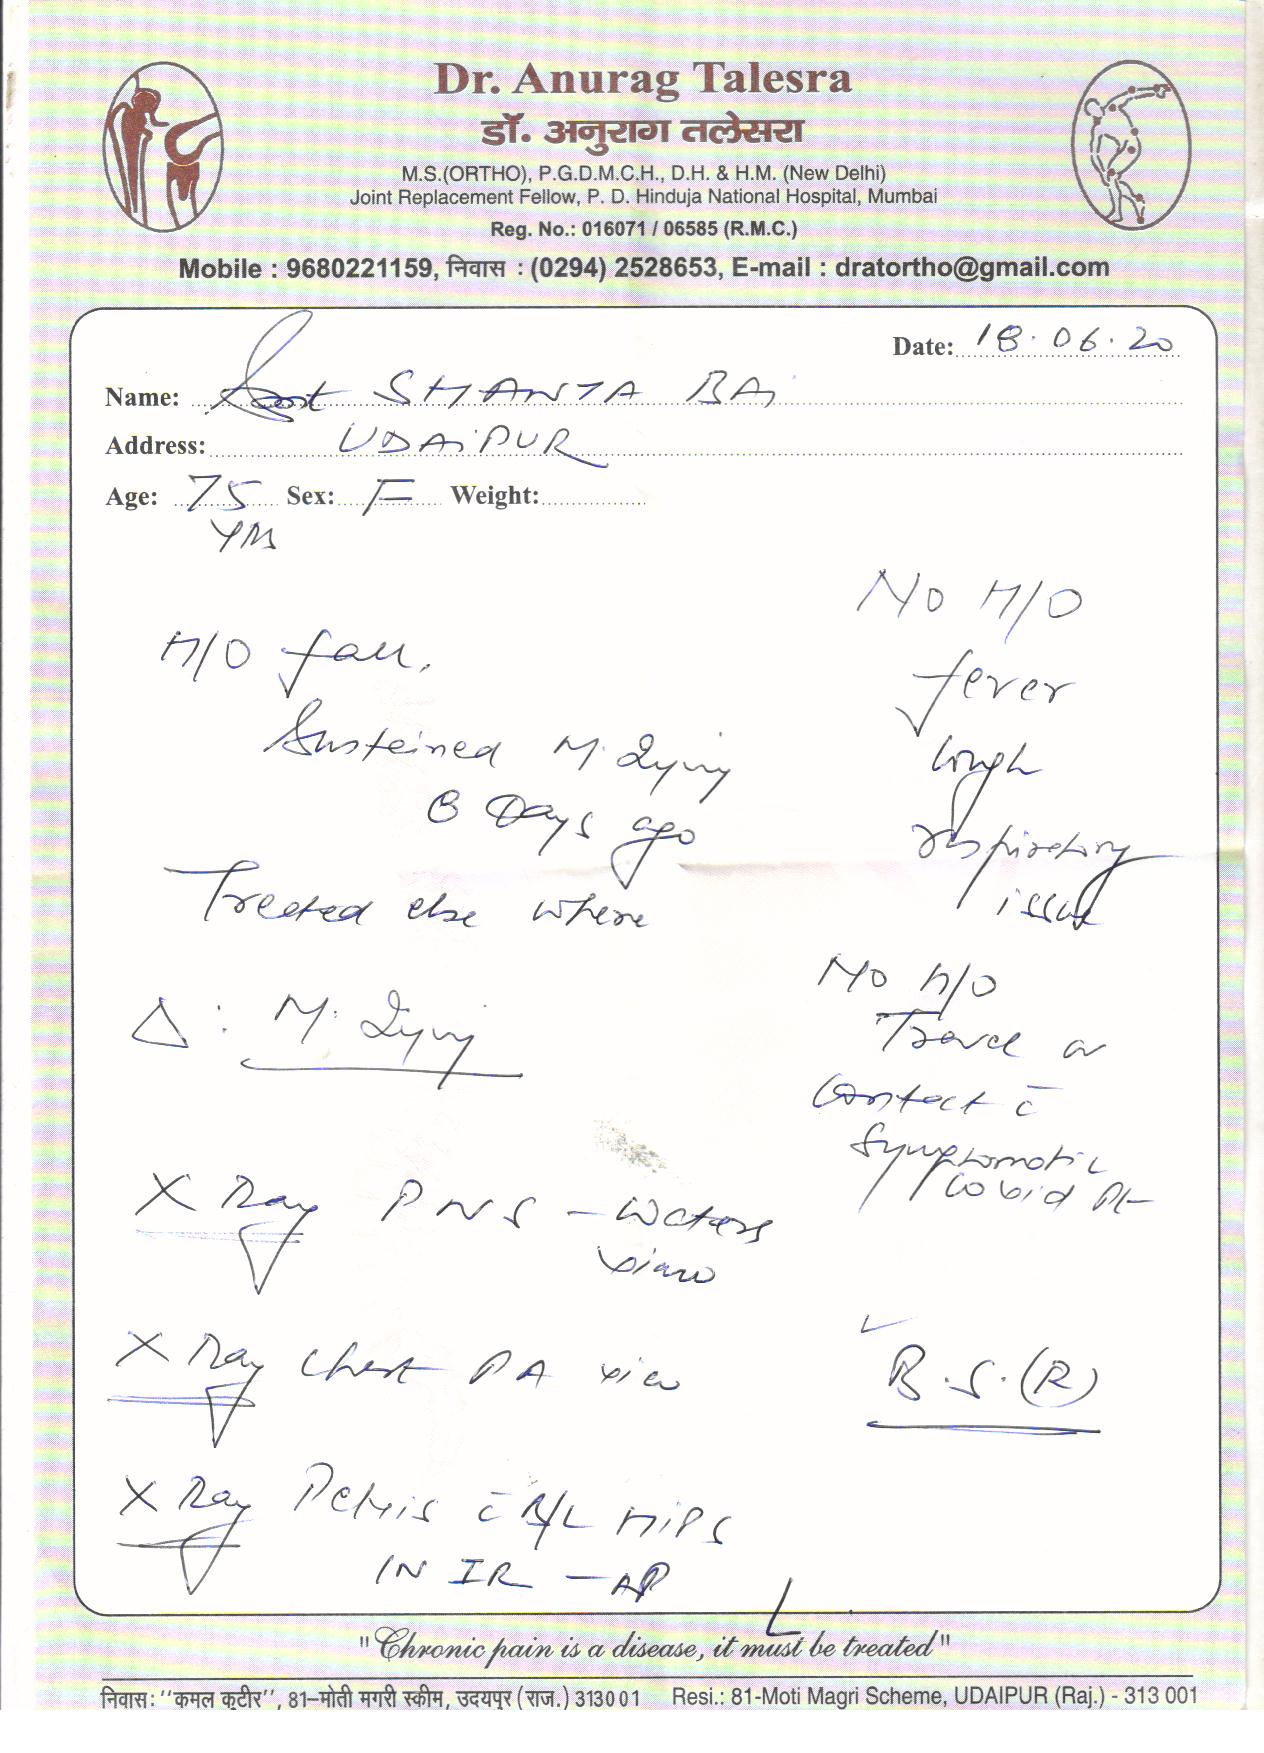 Dr. Anurag Talesra
डॉ. अनुराग तलेसरा
M.S.(ORTHO), P.G.D.M.C.H., D.H. & H.M. (New Delhi)
Joint Replacement Fellow, P. D. Hinduja National Hospital, Mumbai
Reg. No.: 016071 / 06585 (R.M.C.)
Mobile : 9680221159, निवास : (0294) 2528653, E-mail : dratortho@gmail.com
Date: 18.06.20
Name: SHANTA BAi
Address: UDAiPUR
Age: 75 Sex: F Weight:
Yrs
H/O fall.
Susteined M. Injury
Days ago
Treated else where
Δ : M. Injury
X Ray PNS - Waters
view
X Ray Chest PA view
X Ray Pelvis c̄ B/L HiPS
IN IR - AP
No H/O
fever
Cough
respiratory
issue
No H/O
Travel or
Contact c̄
Symptomatic
Covid Pt
B.S.(R)
"Chronic pain is a disease, it must be treated"
निवास: ''कमल कुटीर'', 81–मोती मगरी स्कीम, उदयपुर (राज.) 313001 Resi.: 81-Moti Magri Scheme, UDAIPUR (Raj.) - 313 001